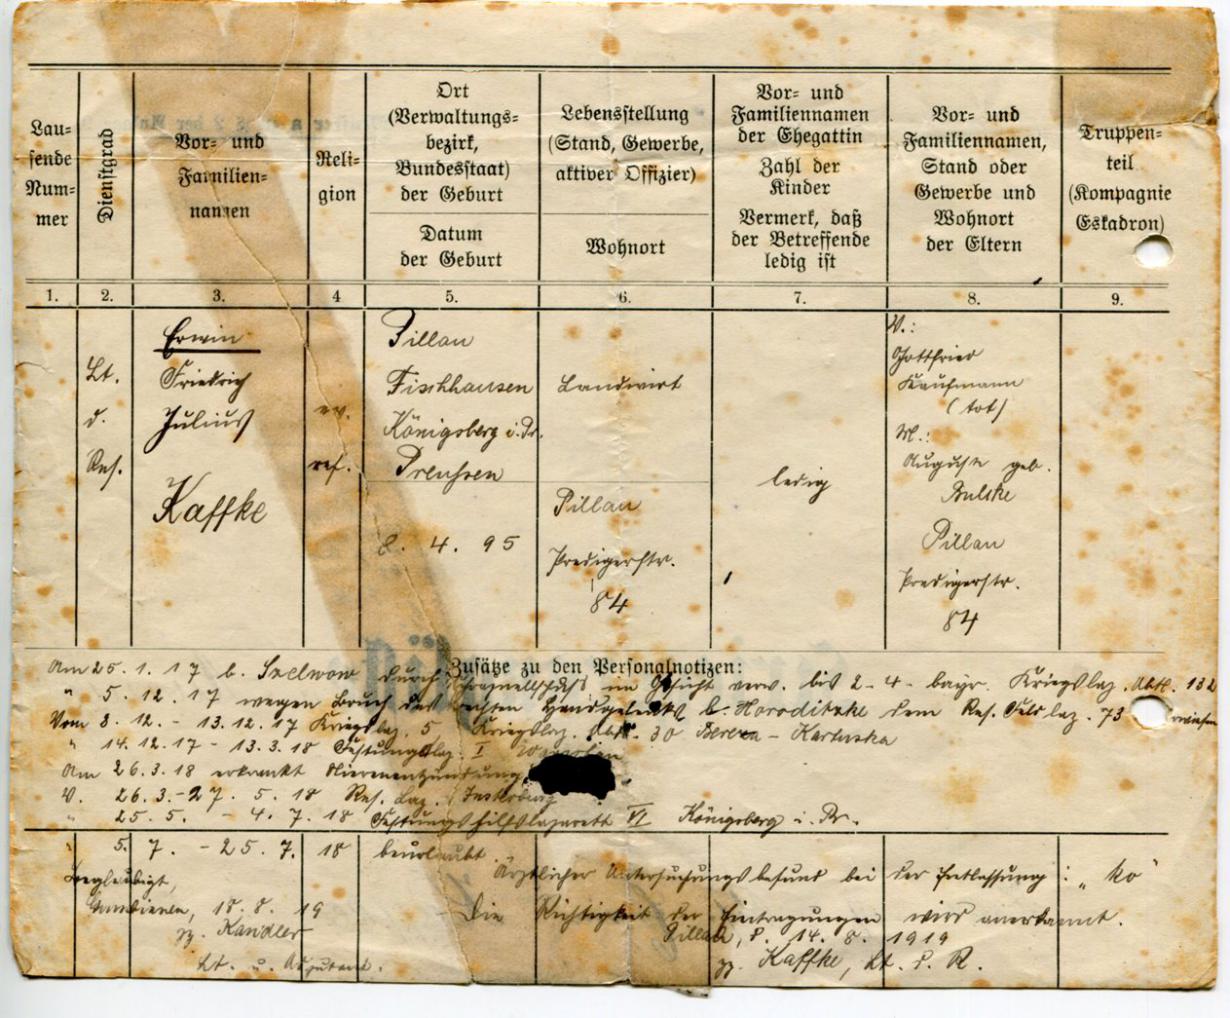 Lau-
fende
Num-
mer
Dienstgrad
Vor- und
Familien-
namen
Reli-
gion
Ort
(Verwaltungs-
bezirk,
Bundesstaat)
der Geburt
Datum
der Geburt
Lebensstellung
(Stand, Gewerbe,
aktiver Offizier)
Wohnort
Vor- und
Familiennamen
der Ehegattin
Zahl der
Kinder
Vermerk, daß
der Betreffende
ledig ist
Vor- und
Familiennamen,
Stand oder
Gewerbe und
Wohnort
der Eltern
Truppen-
teil
(Kompagnie
Eskadron)
1. 2. 3. 4 5. 6. 7. 8. 9.
Lt.
d.
Res.
Erwin
Friedrich
Julius
Kaffke
ev.
ref.
Pillau
Fischhausen
Königsberg i. Pr.
Preussen
8. 4. 95
Landwirt
Pillau
Predigerstr.
84
ledig
V.:
Gottfried
Kaufmann
(tot)
M.:
Auguste geb.
Pillau
Predigerstr.
84
Zusätze zu den Personalnotizen:
Am 25. 1. 17 b. Szelwow durch im Gesicht verw. bis 2-4- bayr. Kriegslaz. Abtl. 132
" 5. 12. 17 wegen Bruch des rechten Handgelenks b. Horoditzke dem Res. Feldlaz. 73
Vom 8. 12. - 13. 12. 17 Kriegslaz. 5, Kriegslaz. Abt. 30 Bereza - Kartuska
" 14. 12. 17 - 13. 3. 18 Festungslaz. I Warschau
Am 26. 3. 18 erkrankt Nierenentzündung
V. 26. 3. - 27. 5. 18 Res. Laz. Insterburg
" 25. 5. - 4. 7. 18 Festungshilfslazarett VI Königsberg i. Pr.
" 5. 7. - 25. 7. 18 beurlaubt.
Ärztlicher Untersuchungsbefund bei der Entlassung: "
Beglaubigt,
Gumbinnen, 18. 8. 19
gz. Kandler
Lt. u. Adjutant.
Die Richtigkeit der Eintragungen wird anerkannt.
Pillau, d. 14. 8. 1919
gz. Kaffke, Lt. d. R.